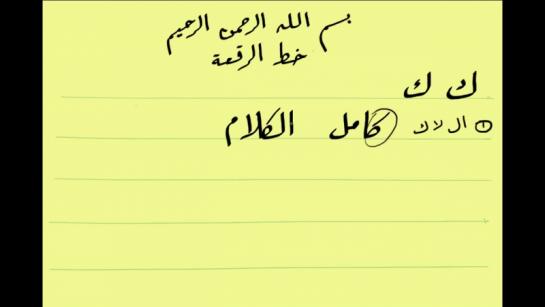 بسم الله الرحمن الرحيم
خط الرقعة
ك ك
① ال لاك كامل الكلام